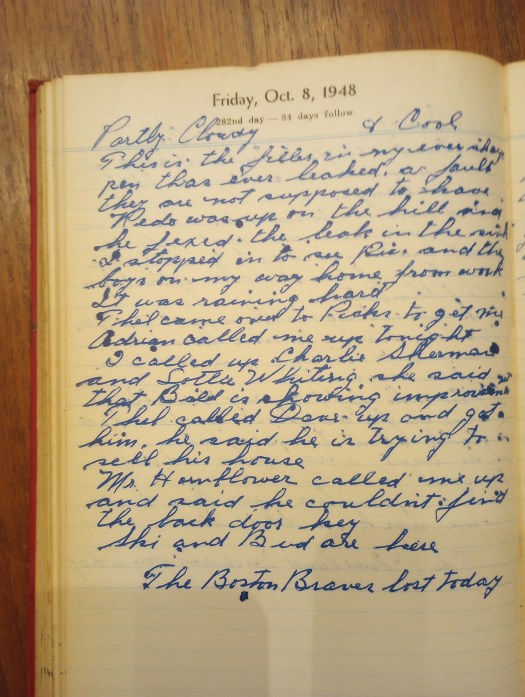 Friday, Oct. 8, 1948
282nd day — 84 days follow
Partly Cloudy & Cool
This is the first in my ever sharp
pen thas ever leaked. a fault
they are not supposed to have
was up on the hill and
he fixed the leak in the sink
I stopped in to see Ric. and the
boys on my way home from work
It was raining hard
Thel came over to Ricks to get me
Adrian called me up tonight
I called up Charlie Sherman
and Lottie Whiting, she said
that Bill is showing improvement
Thel called Dave up and got
him, he said he is trying to
sell his house
Mr. Hornflower called me up
and said he couldn't find
the back door key
Ski and Bud are here
The Boston Braves lost today